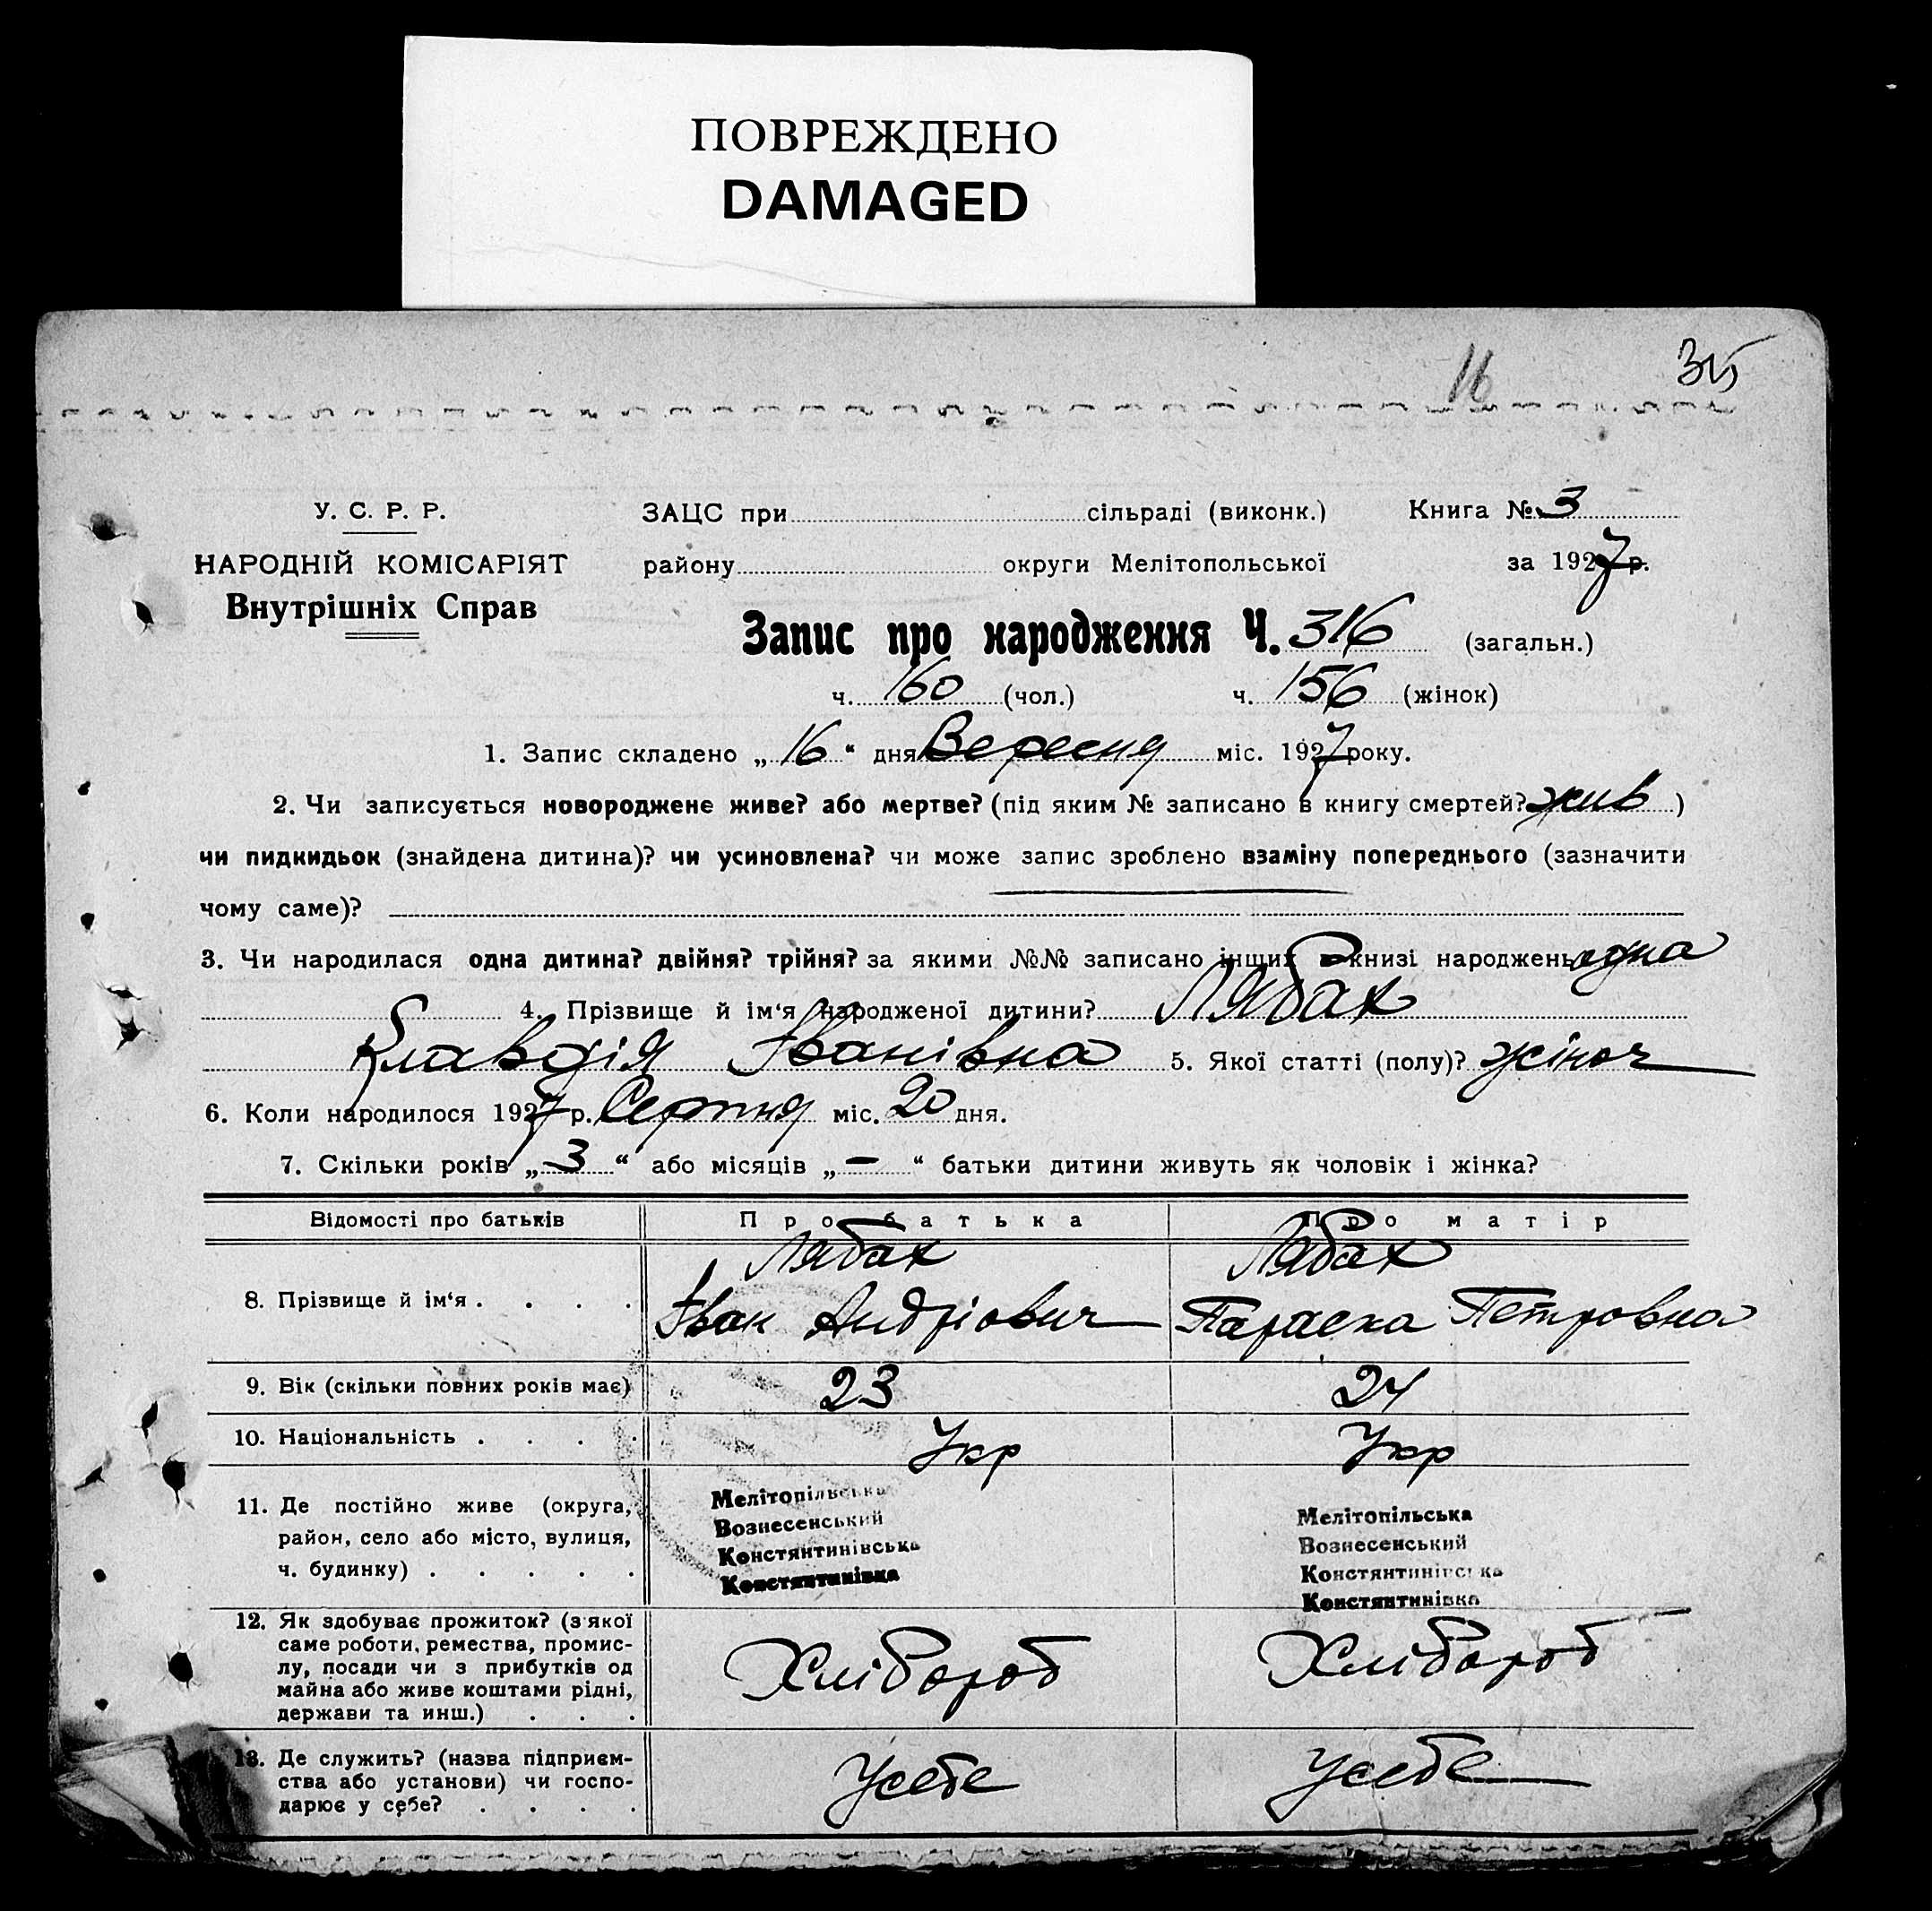 ПОВРЕЖДЕНО
DAMAGED
16
У. С. Р. Р.
НАРОДНІЙ КОМІСАРІЯТ
Внутрішніх Справ
ЗАЦС при сільраді (виконк.) Книга № 3
району округи Мелітопольської за 1927 р.
Запис про народження Ч. 316 (загальн.)
ч. 160 (чол.) ч. 156 (жінок)
1. Запис складено „ 16 “ дня Вересня міс. 1927 року.
2. Чи записується новороджене живе? або мертве? (під яким № записано в книгу смертей? жив )
чи пидкидьок (знайдена дитина)? чи усиновлена? чи може запис зроблено взаміну попереднього (зазначити
чому саме)?
3. Чи народилася одна дитина? двійня? трійня? за якими №№ записано інших в книзі народжень одна
4. Прізвище й ім‘я народженої дитини? Лябах
Клавдія Іванівна 5. Якої статті (полу)? жіноч
6. Коли народилося 1927 р. Серпня міс. 20 дня.
7. Скільки років „ 3 “ або місяців „ — “ батьки дитини живуть як чоловік і жінка?
Відомості про батьків Про батька Про матір
8. Прізвище й ім‘я . . . . Лябах Іван Андріович Лябах Параска Петровна
9. Вік (скільки повних років має) 23 24
10. Національність . . . . Укр Укр
11. Де постійно живе (округа, район, село або місто, вулиця, ч. будинку) . . . . .
Мелітопільська Вознесенський Констянтинівська Констянтинівка
Мелітопільська Вознесенський Констянтинівська Констянтинівка
12. Як здобуває прожиток? (з якої саме роботи, ремества, промис-
лу, посади чи з прибутків од майна або живе коштами рідні, держави та инш.) . . .
Хлібороб Хлібороб
13. Де служить? (назва підприєм-
ства або установи) чи госпо-
дарює у себе? . . . .
Усебе Усебе